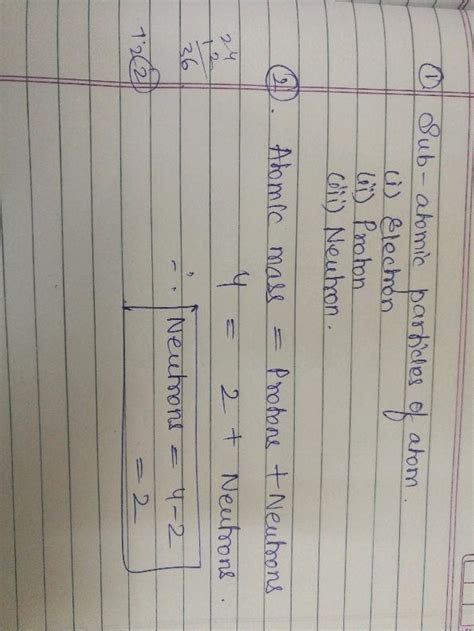 ① Sub-atomic particles of atom.
(i) Electron
(ii) Proton
(iii) Neutron.
②. Atomic mass = Protons + Neutrons
4 = 2 + Neutrons.
∴ Neutrons = 4-2
= 2
24
12
36